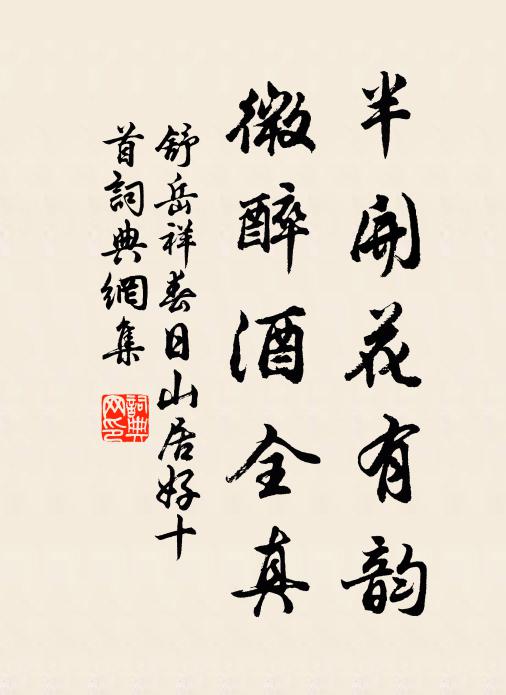 半開花有韵
微醉酒全真
舒岳祥春日山居好十
首詞典網集
詞典网印